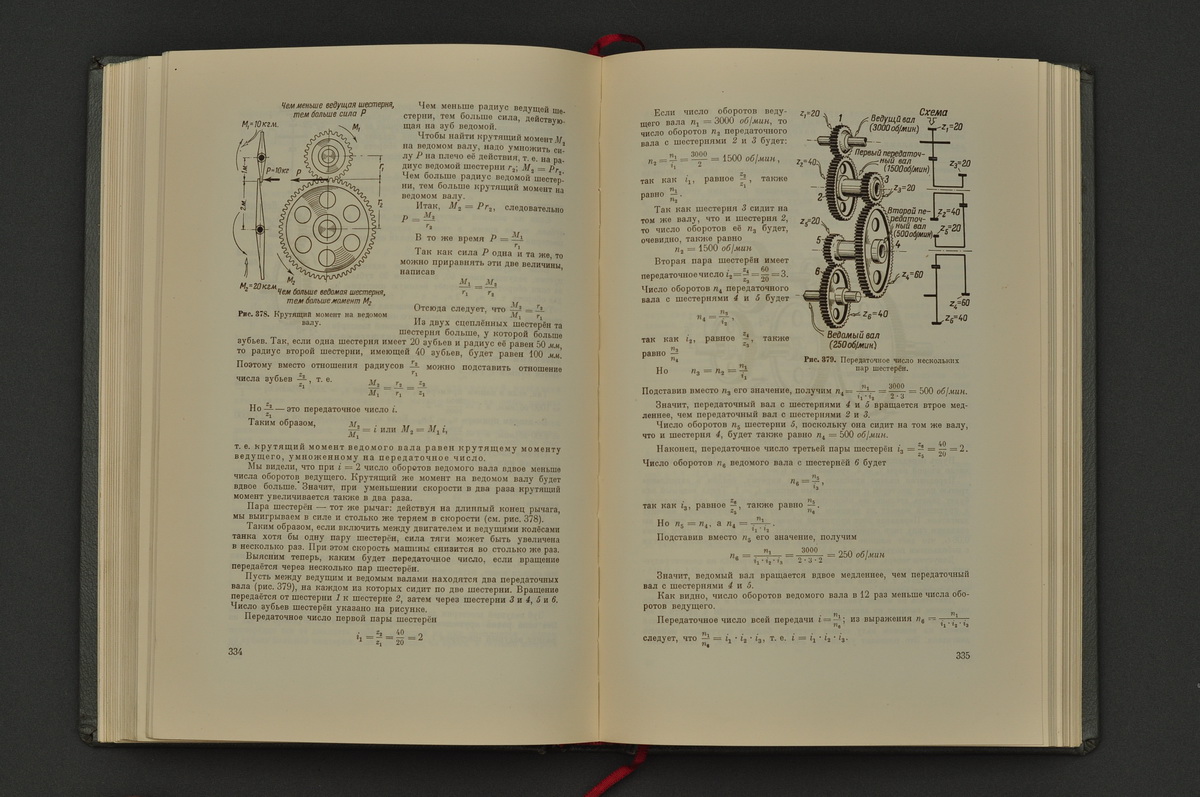 Чем меньше ведущая шестерня,
тем больше сила P
M₁=10кгм.
M₁
1м
P=10кг
P
r₁
2м
r₂
M₂
M₂=20кгм.
Чем больше ведомая шестерня,
тем больше момент M₂
Рис. 378. Крутящий момент на ведомом
валу.
Чем меньше радиус ведущей ше-
стерни, тем больше сила, действую-
щая на зуб ведомой.
Чтобы найти крутящий момент M₂
на ведомом валу, надо умножить си-
лу P на плечо её действия, т. е. на ра-
диус ведомой шестерни r₂; M₂ = Pr₂.
Чем больше радиус ведомой шестер-
ни, тем больше крутящий момент на
ведомом валу.
Итак, M₂ = Pr₂, следовательно
P = M₂/r₂
В то же время P = M₁/r₁
Так как сила P одна и та же, то
можно приравнять эти две величины,
написав
M₁/r₁ = M₂/r₂
Отсюда следует, что M₂/M₁ = r₂/r₁
Из двух сцеплённых шестерён та
шестерня больше, у которой больше
зубьев. Так, если одна шестерня имеет 20 зубьев и радиус её равен 50 мм,
то радиус второй шестерни, имеющей 40 зубьев, будет равен 100 мм.
Поэтому вместо отношения радиусов r₂/r₁ можно подставить отношение
числа зубьев z₂/z₁, т. е.
M₂/M₁ = r₂/r₁ = z₂/z₁
Но z₂/z₁ — это передаточное число i.
Таким образом,
M₂/M₁ = i или M₂ = M₁i,
т. е. крутящий момент ведомого вала равен крутящему моменту
ведущего, умноженному на передаточное число.
Мы видели, что при i = 2 число оборотов ведомого вала вдвое меньше
числа оборотов ведущего. Крутящий же момент на ведомом валу будет
вдвое больше. Значит, при уменьшении скорости в два раза крутящий
момент увеличивается также в два раза.
Пара шестерён — тот же рычаг: действуя на длинный конец рычага,
мы выигрываем в силе и столько же теряем в скорости (см. рис. 378).
Таким образом, если включить между двигателем и ведущими колёсами
танка хотя бы одну пару шестерён, сила тяги может быть увеличена
в несколько раз. При этом скорость машины снизится во столько же раз.
Выясним теперь, каким будет передаточное число, если вращение
передаётся через несколько пар шестерён.
Пусть между ведущим и ведомым валами находятся два передаточных
вала (рис. 379), на каждом из которых сидит по две шестерни. Вращение
передаётся от шестерни 1 к шестерне 2, затем через шестерни 3 и 4, 5 и 6.
Число зубьев шестерён указано на рисунке.
Передаточное число первой пары шестерён
i₁ = z₂/z₁ = 40/20 = 2
334
Если число оборотов веду-
щего вала n₁ = 3000 об/мин, то
число оборотов n₂ передаточного
вала с шестернями 2 и 3 будет:
n₂ = n₁/i₁ = 3000/2 = 1500 об/мин,
так как i₁, равное z₂/z₁, также
равно n₁/n₂.
Так как шестерня 3 сидит на
том же валу, что и шестерня 2,
то число оборотов её n₃ будет,
очевидно, также равно
n₃ = 1500 об/мин
Вторая пара шестерён имеет
передаточное число i₂ = z₄/z₃ = 60/20 = 3.
Число оборотов n₄ передаточного
вала с шестернями 4 и 5 будет
n₄ = n₃/i₂,
так как i₂, равное z₄/z₃, также
равно n₃/n₄
Но n₃ = n₂ = n₁/i₁
z₁=20
1
Ведущий вал
(3000об/мин)
Схема
z₁=20
z₂=40
Первый передаточ-
ный вал
(1500об/мин)
z₃=20
3
2
z₃=20
z₅=20
Второй пе-
редаточ-
ный вал
(500об/мин)
z₂=40
z₅=20
5
4
6
z₄=60
z₆=40
z₄=60
z₆=40
Ведомый вал
(250об/мин)
Рис. 379. Передаточное число нескольких
пар шестерён.
Подставив вместо n₃ его значение, получим n₄ = n₁/i₁·i₂ = 3000/2·3 = 500 об/мин.
Значит, передаточный вал с шестернями 4 и 5 вращается втрое мед-
леннее, чем передаточный вал с шестернями 2 и 3.
Число оборотов n₅ шестерни 5, поскольку она сидит на том же валу,
что и шестерня 4, будет также равно n₄ = 500 об/мин.
Наконец, передаточное число третьей пары шестерён i₃ = z₆/z₅ = 40/20 = 2.
Число оборотов n₆ ведомого вала с шестернёй 6 будет
n₆ = n₅/i₃,
так как i₃, равное z₆/z₅, также равно n₅/n₆.
Но n₅ = n₄, а n₄ = n₁/i₁·i₂.
Подставив вместо n₅ его значение, получим
n₆ = n₁/i₁·i₂·i₃ = 3000/2·3·2 = 250 об/мин
Значит, ведомый вал вращается вдвое медленнее, чем передаточный
вал с шестернями 4 и 5.
Как видно, число оборотов ведомого вала в 12 раз меньше числа обо-
ротов ведущего.
Передаточное число всей передачи i = n₁/n₆; из выражения n₆ = n₁/i₁·i₂·i₃
следует, что n₁/n₆ = i₁ · i₂ · i₃, т. е. i = i₁ · i₂ · i₃.
335